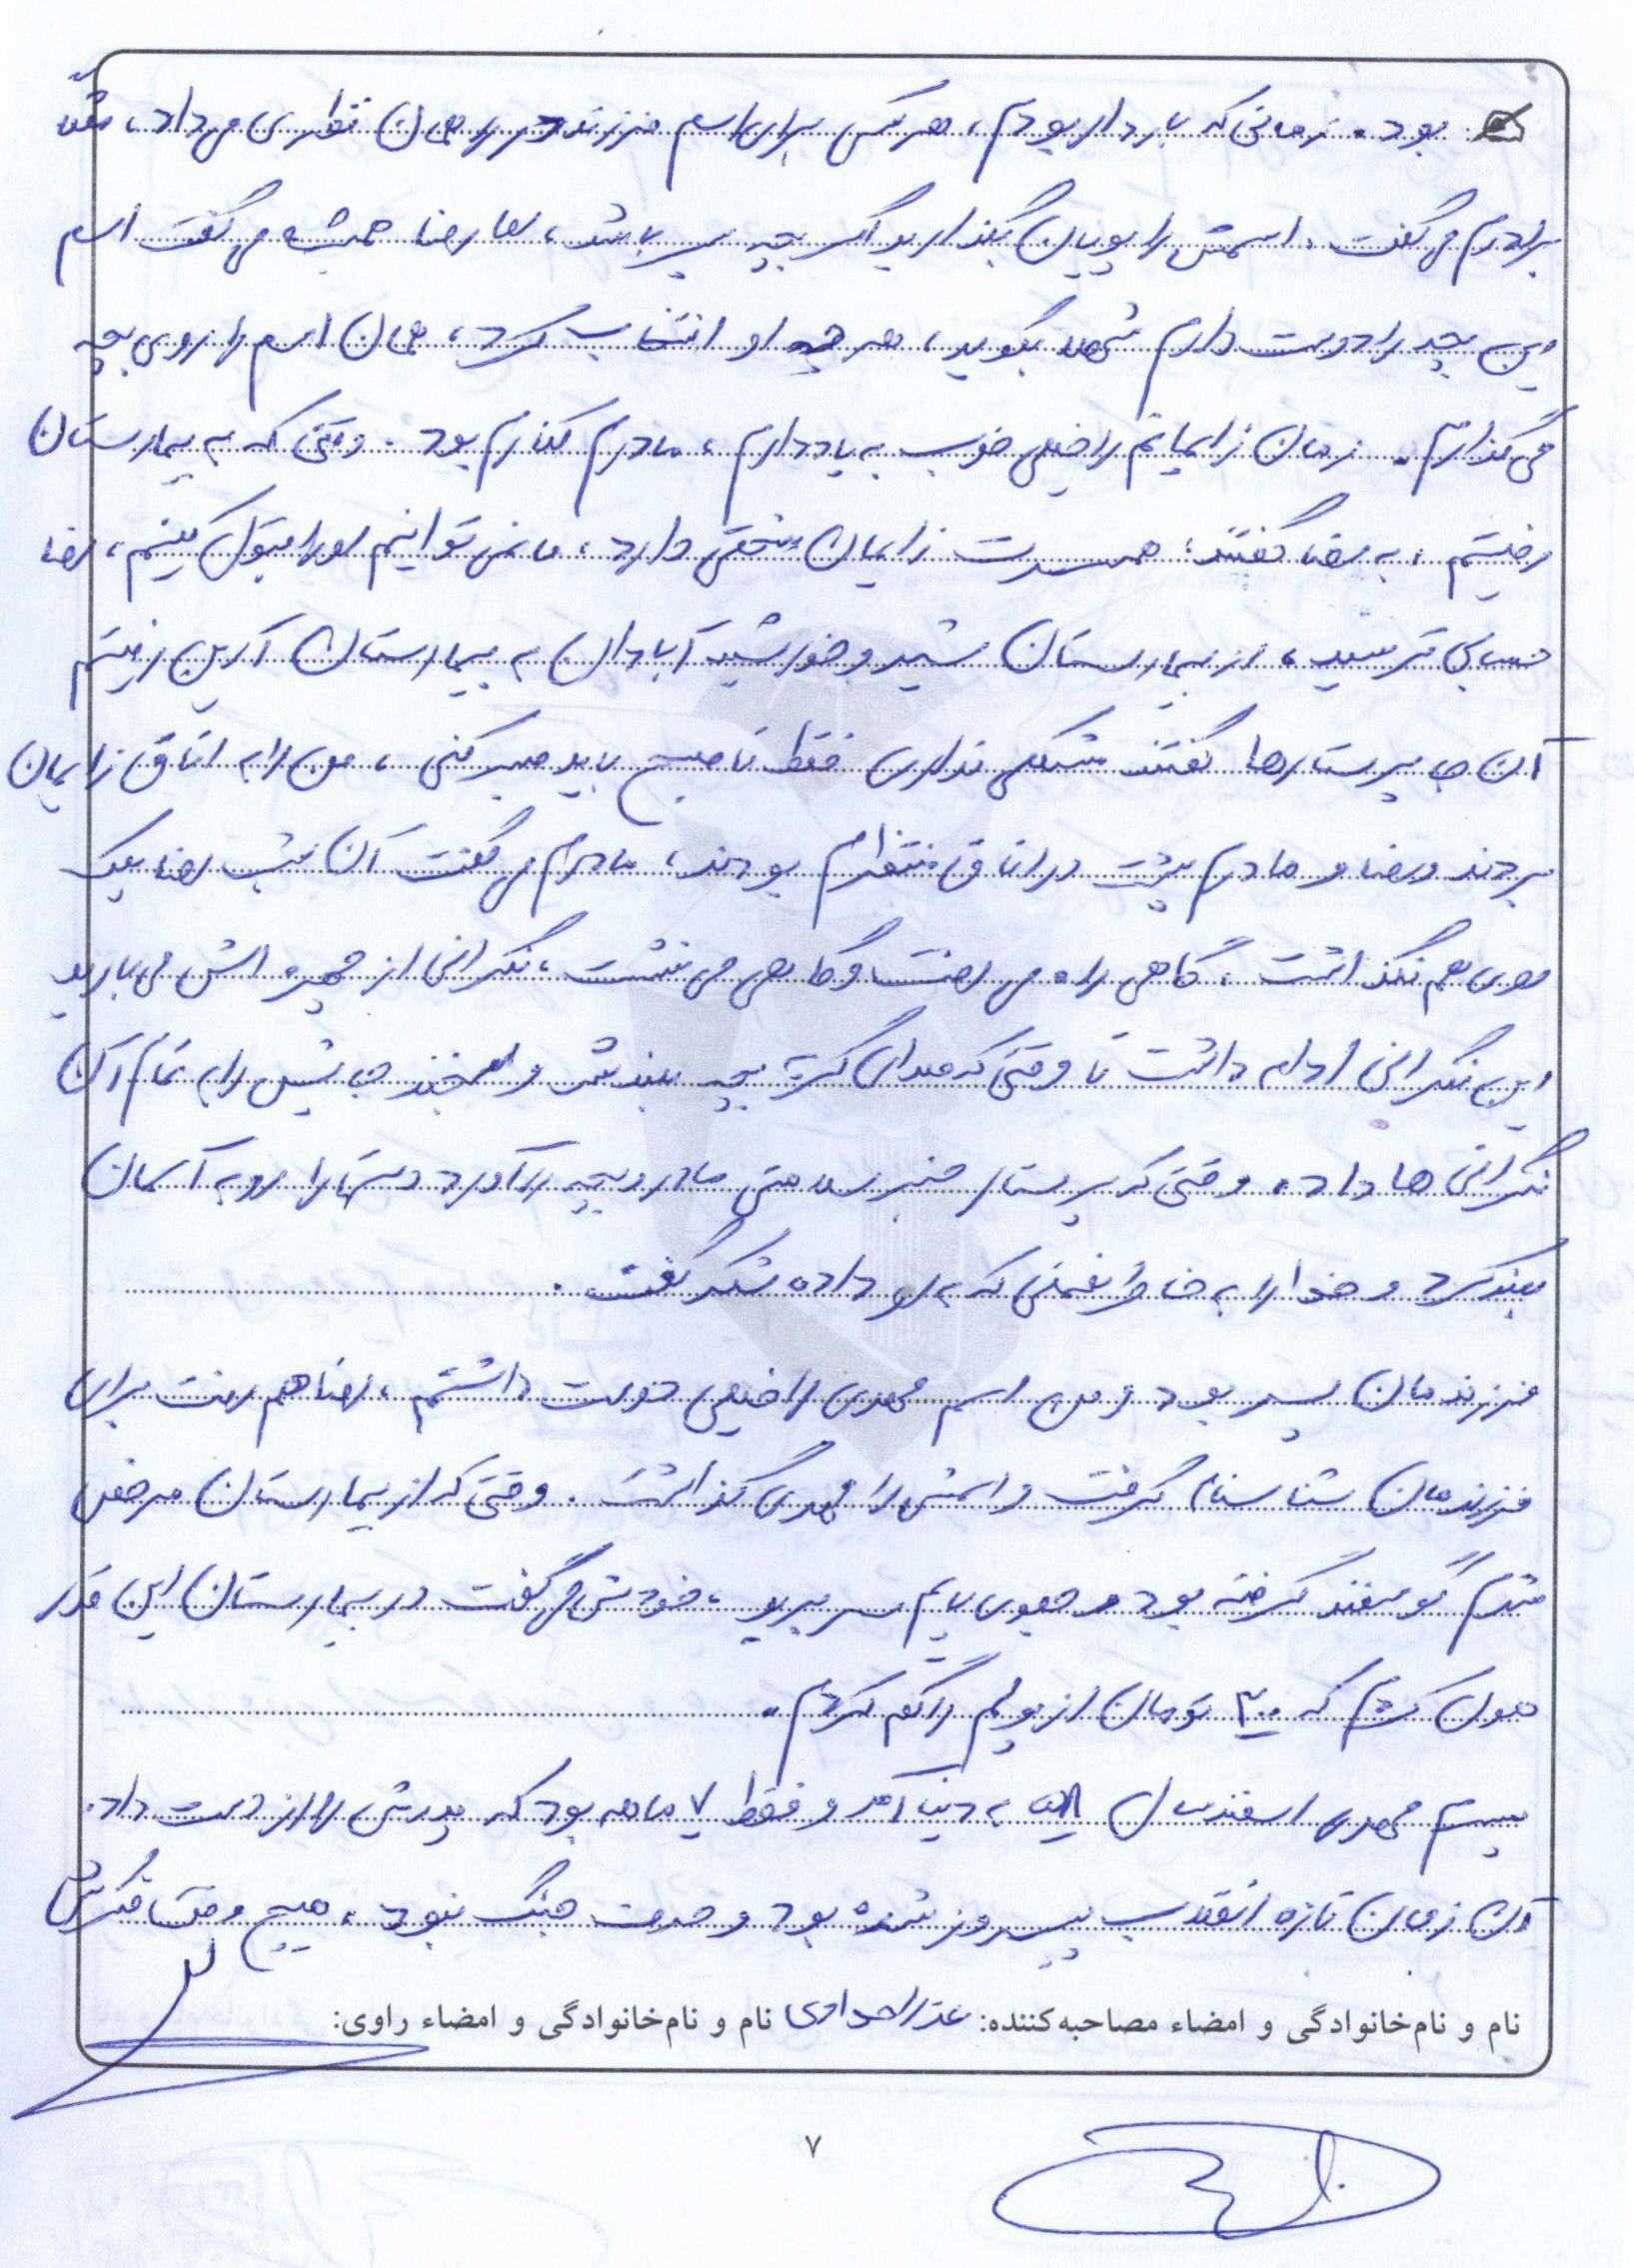 بود. زمانی که باردار بودم، هر کس برای اسم فرزند در راهمان نظری می داد، مثلا
برادرم می گفت، اسمش را پویان بگذارید اگر بچه پسر باشد، اما رضا همیشه می گفت اسم
این بچه را دوست دارم شهلا بگوید، هر چه او انتخاب کرد، همان اسم را روی بچه
می گذارم. زمان زایمانم را خیلی خوب به یاد دارم، مادرم کنارم بود. وقتی که به بیمارستان
رفتیم، به رضا گفتند: همسرت زایمان سختی دارد، ما نمی توانیم او را قبول کنیم، رضا
حسابی ترسید، از بیمارستان شیر و خورشید آبادان به بیمارستان آرین رفتیم
آن جا پرستارها گفتند مشکلی نداری فقط تا صبح باید صبر کنی، من را به اتاق زایمان
بردند و رضا و مادرم پشت در اتاق منتظرم بودند، مادرم می گفت آن شب رضا پلک
روی هم نگذاشت، گاهی راه می رفت و گاهی می نشست، نگرانی از چهره اش می بارید
این نگرانی ادامه داشت تا وقتی که صدای گریه بچه بلند شد و لبخند جایش را به تمام آن
نگرانی ها داد. وقتی که پرستار خبر سلامتی مادر و بچه را آورد دستها را رو به آسمان
بلند کرد و خدا را به خاطر نعمتی که به او داده شکر گفت.
فرزندمان پسر بود و من اسم مهدی را خیلی دوست داشتم، رضا هم رفت برای
فرزندمان شناسنامه گرفت و اسمش را مهدی گذاشت. وقتی که از بیمارستان مرخص
شدم گوسفند گرفته بود و جلوی پایم سر برید، خودش می گفت در بیمارستان این قدر
هول کردم که ۳۰۰ تومان از پولم را گم کردم.
پسرم مهدی اسفند سال به دنیا آمد و فقط ۷ ماهه بود که پدرش را از دست داد.
آن زمان تازه انقلاب پیروز شده بود و صحبت جنگ نبود، هیچ وقت فکرش
نام و نام‌خانوادگی و امضاء مصاحبه‌کننده: عذرا نام و نام‌خانوادگی و امضاء راوی:
۷